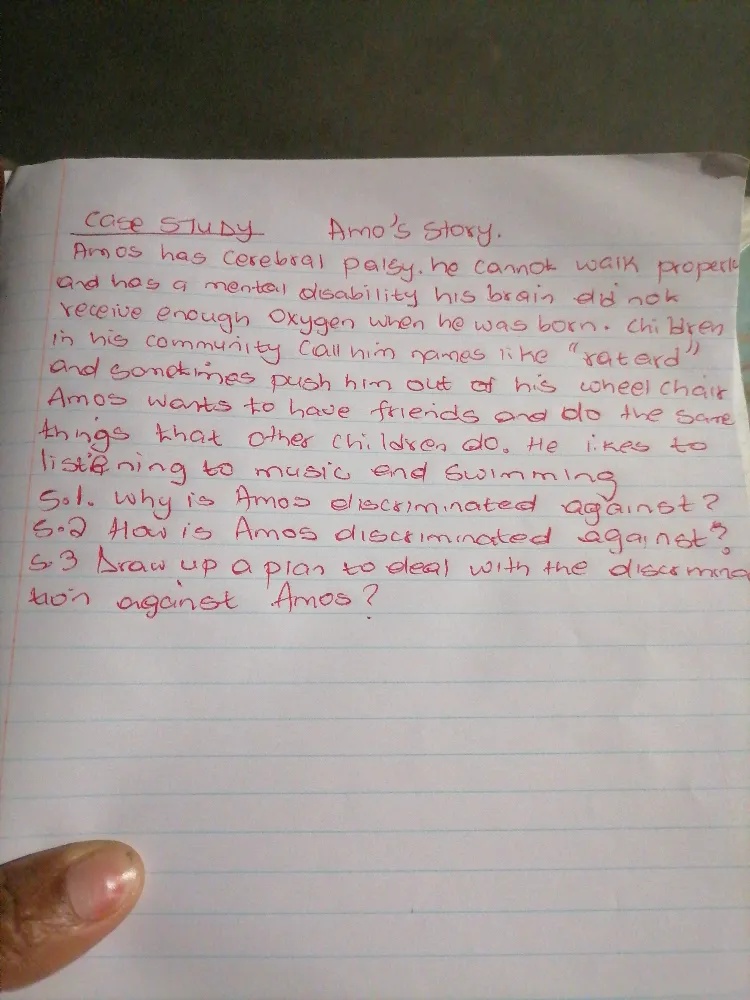 Case STUDY Amo's Story.
Amos has cerebral palsy. he cannot walk properly
and has a mental disability his brain did not
receive enough oxygen when he was born. Children
in his community call him names like "ratard"
and sometimes push him out of his wheel chair
Amos wants to have friends and do the same
things that other children do. He likes to
listening to music and swimming
5.1. why is Amos discriminated against?
5.2 How is Amos discriminated against?
5.3 Draw up a plan to deal with the discrimina
tion against Amos?